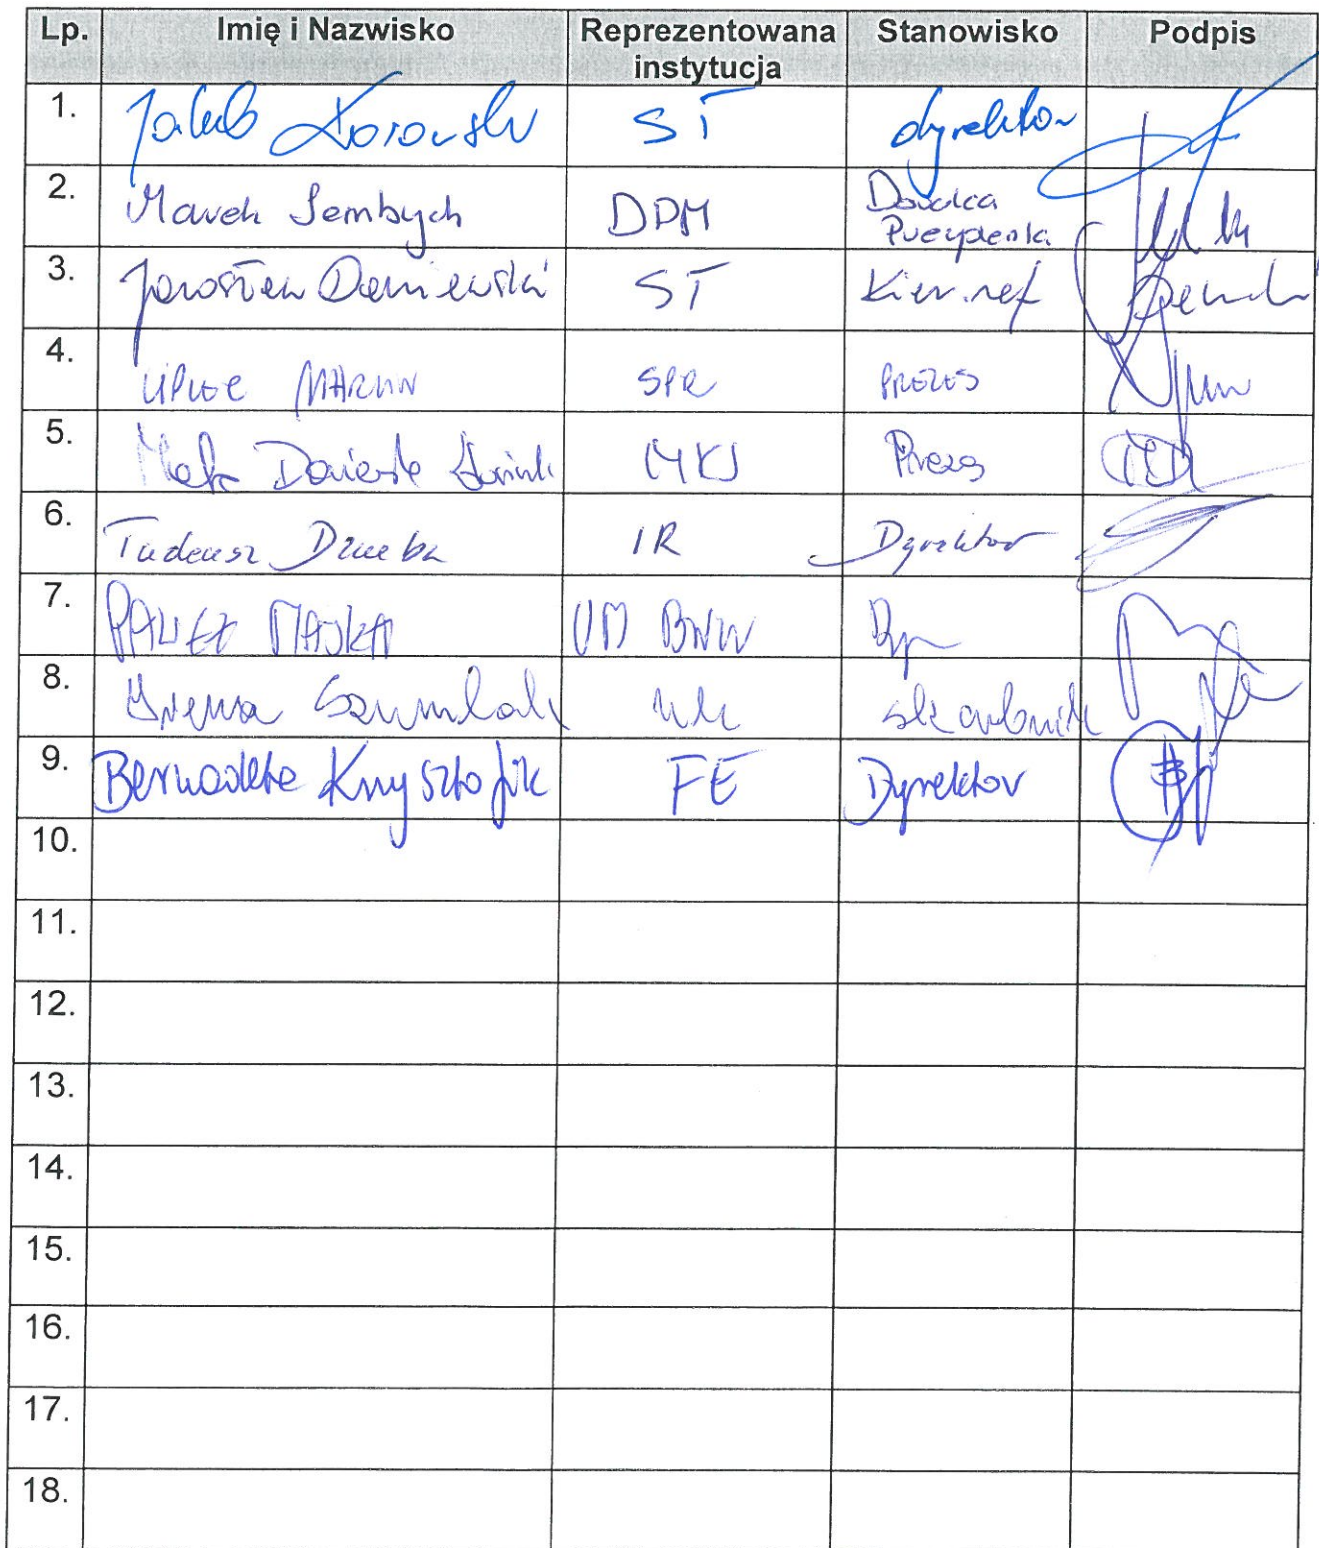 Lp. Imię i Nazwisko Reprezentowana instytucja Stanowisko Podpis
1. Jakub ST dyrektor
2. Marek Sembrych DPM Doradca Prezydenta
3. Jarosław Daniewski ST Kier. ref
4. MARCIN SPR PREZES
5. MKS Prezes
6. Tadeusz Dziuba IR Dyrektor
7. PAWEŁ MAJKA UM BWW Dyr
8. Irena Szumlak UM skarbnik
9. Bernadeta Krzysztofik FE Dyrektor
10.
11.
12.
13.
14.
15.
16.
17.
18.